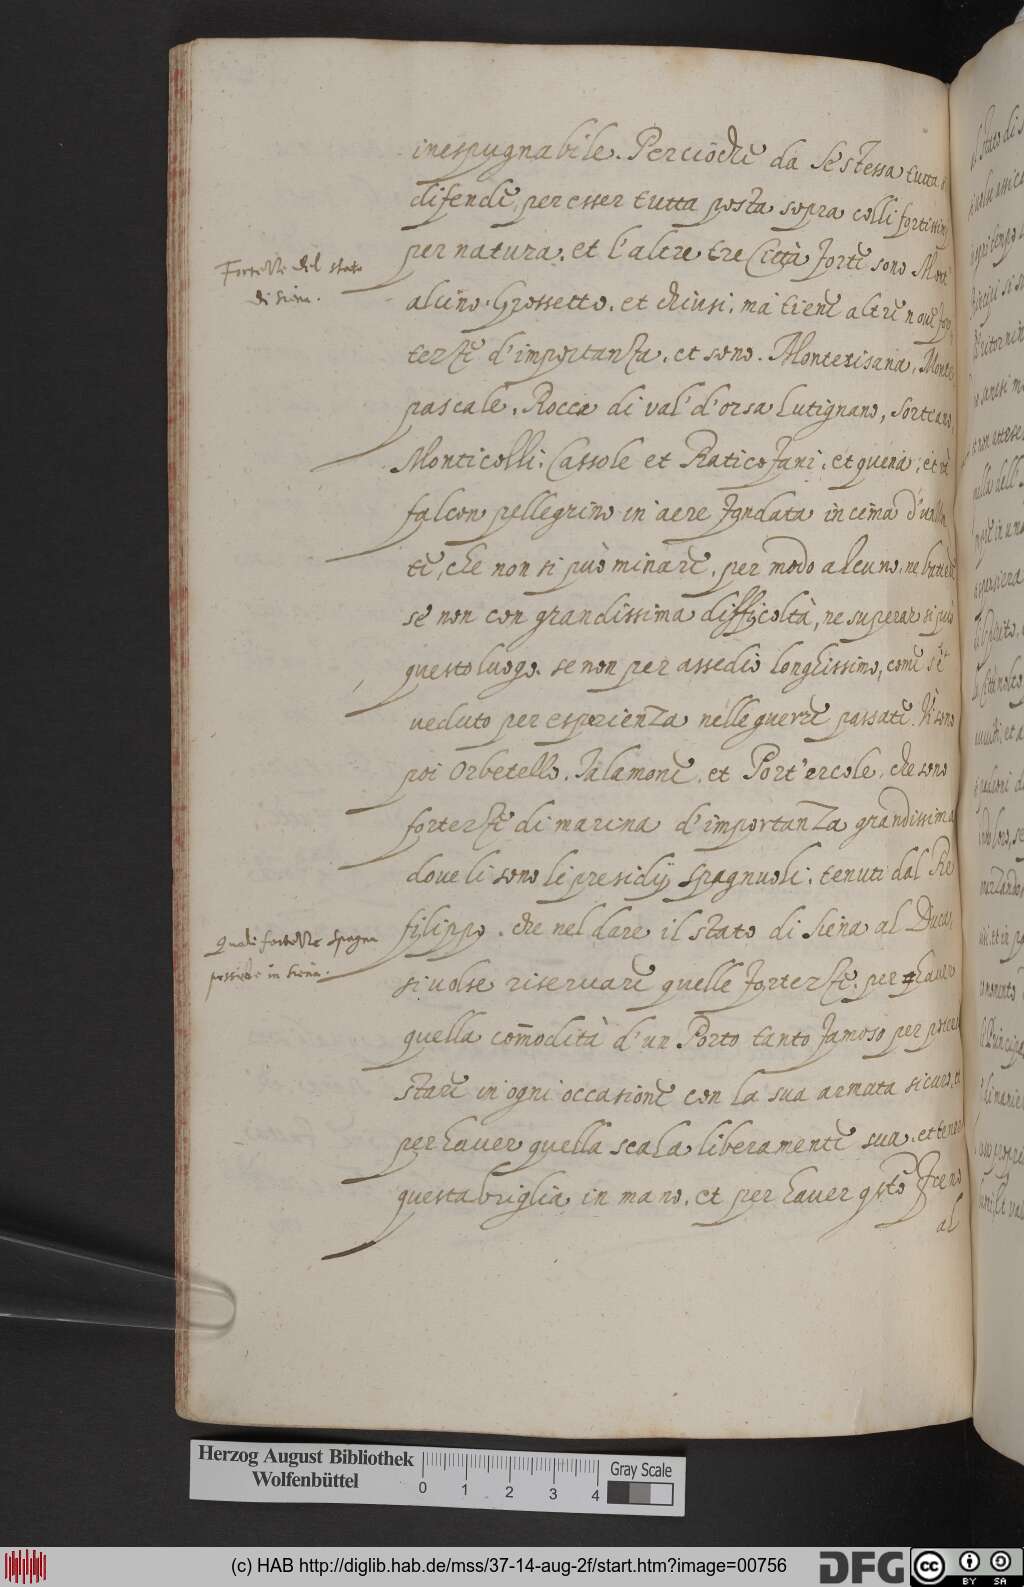 inespugnabile. Percioche da se stessa tutta si
difende, per esser tutta posta sopra colli fortissimi
per natura, et l'altre tre Città forte sono Mont
Fortezze del stato
di Siena.
alcino. Grossetto, et chiusi, ma tiene altre noue for
tezze d'importanza, et sono. Monterisana, Monte
pascale, Rocca di val' d'orsa Lutignano, Sorteano,
Monticolli, Cassole et Raticofani, et queria, et
falcon pellegrino in aere fondata in cima d'un Mon
te, che non si può minare, per modo alcuno, ne battere
se non con grandissima difficoltà, ne superar si può
questo luogo, se non per assedio longhissimo, come s'è
ueduto per esperienza nelle guerre passate. Vi sono
poi Orbetello. Talamone, et Port'ercole, che sono
fortezze di marina d'importanza grandissima
doue li sono li presidij Spagnuoli, tenuti dal Re
filippo, che nel dare il stato di Siena al Duca,
Quali fortezze Spagna
possiede in Siena.
si uolse riseruare quelle fortezze, per hauer
quella comodità d'un Porto tanto famoso per poter
stare in ogni occasione con la sua armata sicuro, et
per hauer quella scala liberamente sua, et tener
questa briglia in mano, et per hauer qsto freno
al
Herzog August Bibliothek
Wolfenbüttel
0 1 2 3 4
Gray Scale
(c) HAB http://diglib.hab.de/mss/37-14-aug-2f/start.htm?image=00756
DFG
cc BY SA